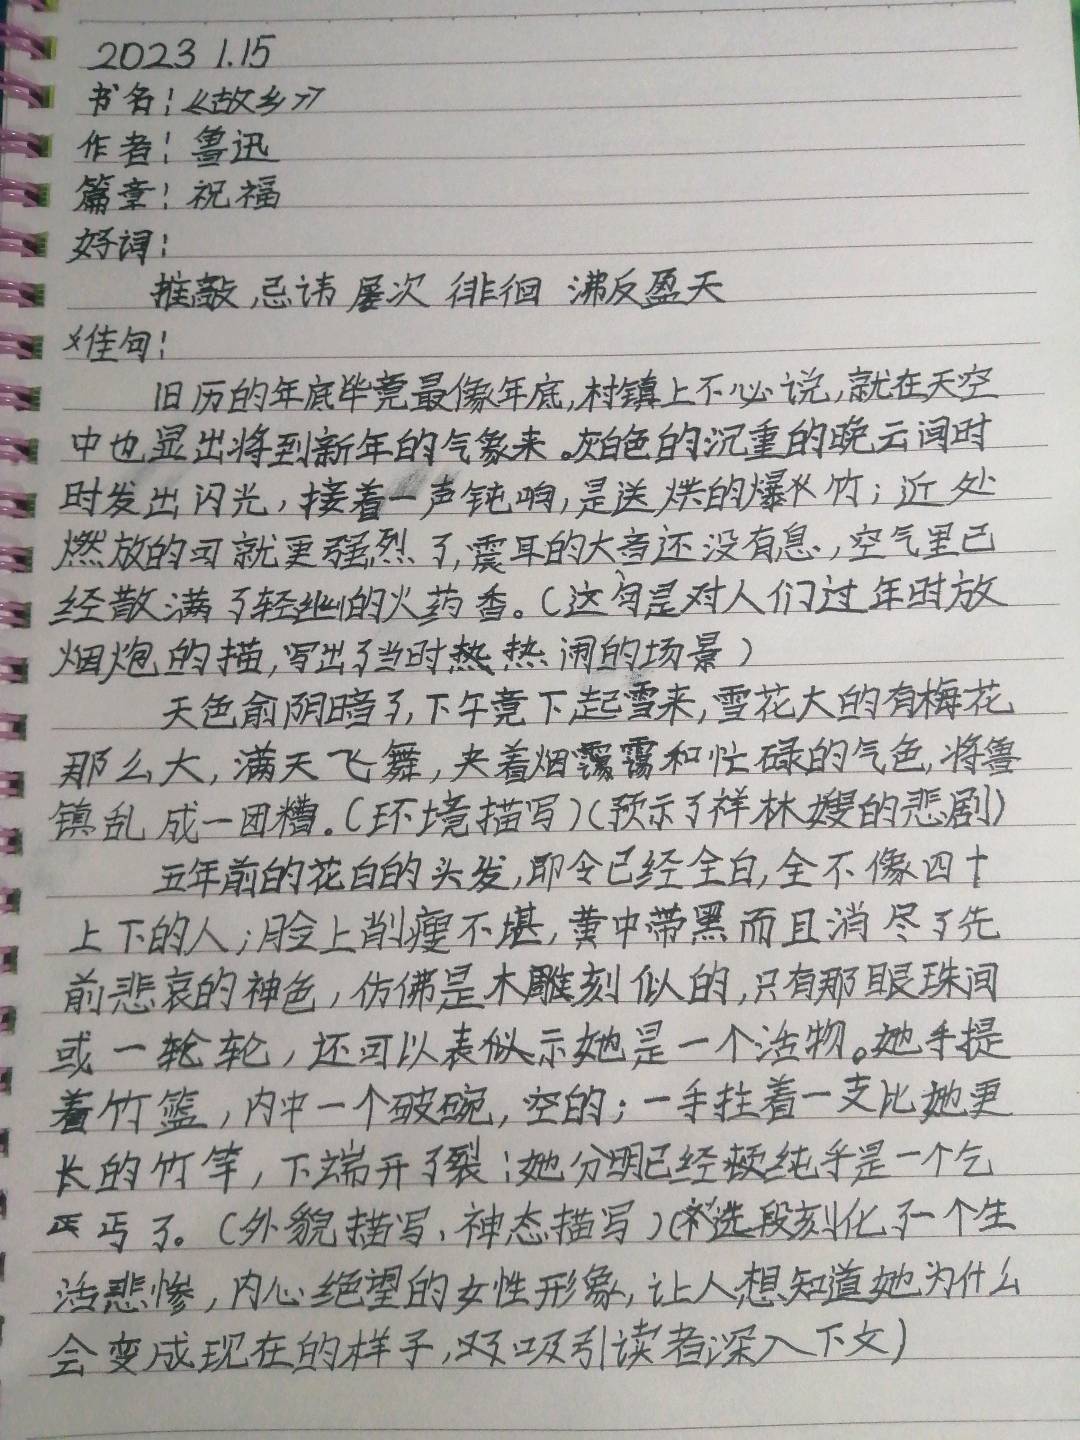 2023 1.15
书名：《故乡》
作者：鲁迅
篇章：祝福
好词：
推敲 忌讳 屡次 徘徊 沸反盈天
佳句：
旧历的年底毕竟最像年底,村镇上不必说,就在天空
中也显出将到新年的气象来。灰白色的沉重的晚云间时
时发出闪光，接着一声钝响,是送灶的爆竹；近处
燃放的可就更强烈了,震耳的大音还没有息，空气里已
经散满了轻幽的火药香。（这句是对人们过年时放
烟炮的描,写出了当时热热闹的场景）
天色俞阴暗了,下午竟下起雪来,雪花大的有梅花
那么大,满天飞舞,夹着烟霭和忙碌的气色,将鲁
镇乱成一团糟。（环境描写）（预示了祥林嫂的悲剧）
五年前的花白的头发,即令已经全白,全不像四十
上下的人；脸上削瘦不堪,黄中带黑而且消尽了先
前悲哀的神色,仿佛是木雕刻似的,只有那眼珠间
或一轮轮,还可以表示她是一个活物。她手提
着竹篮,内中一个破碗,空的；一手拄着一支比她更
长的竹竿,下端开了裂；她分明已经纯乎是一个乞
丐了。（外貌描写、神态描写）（选段刻化了一个生
活悲惨,内心绝望的女性形象,让人想知道她为什么
会变成现在的样子,又吸引读者深入下文）